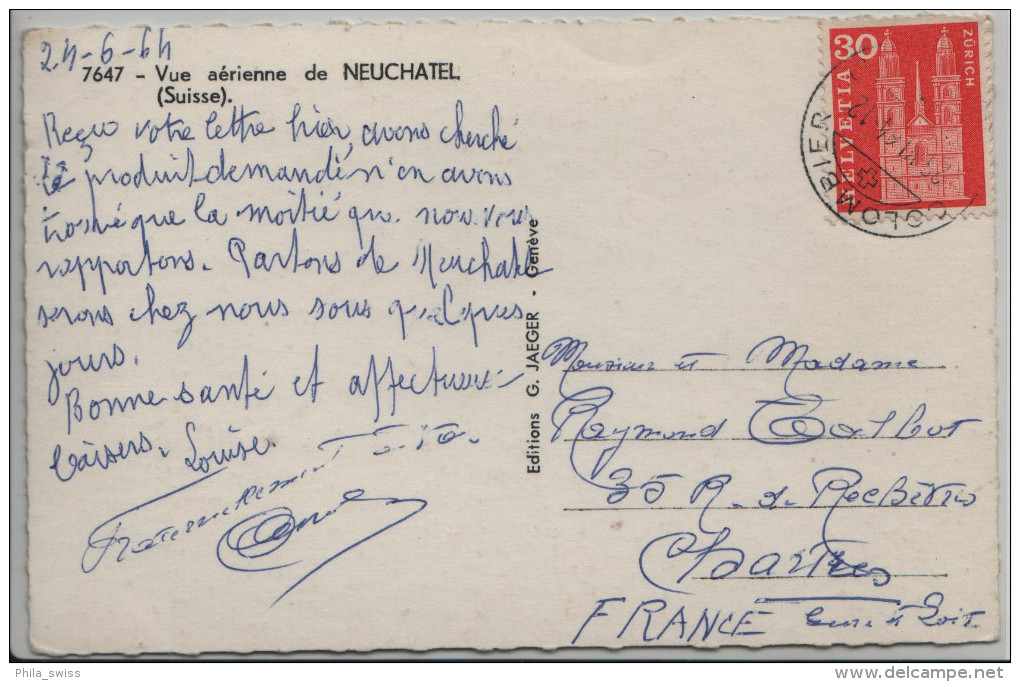 24-6-64
7647 - Vue aérienne de NEUCHATEL
(Suisse).
Reçu votre lettre hier, avons cherché
le produit demandé n'en avons
trouvé que la moitié qu. nous vous
rapportons. Partons de Neuchatel
serons chez nous sous quelques
jours.
Bonne santé et affectueux
baisers. Louise.
Fraternellement à vous.
Editions G. JAEGER - Genève
30
HELVETIA
ZÜRICH
COLOMBIER
Monsieur et Madame
Raymond Talbot
35 R. de Rechèvres
Chartres
FRANCE Eure & Loir
Phila_swiss
delcampe.net